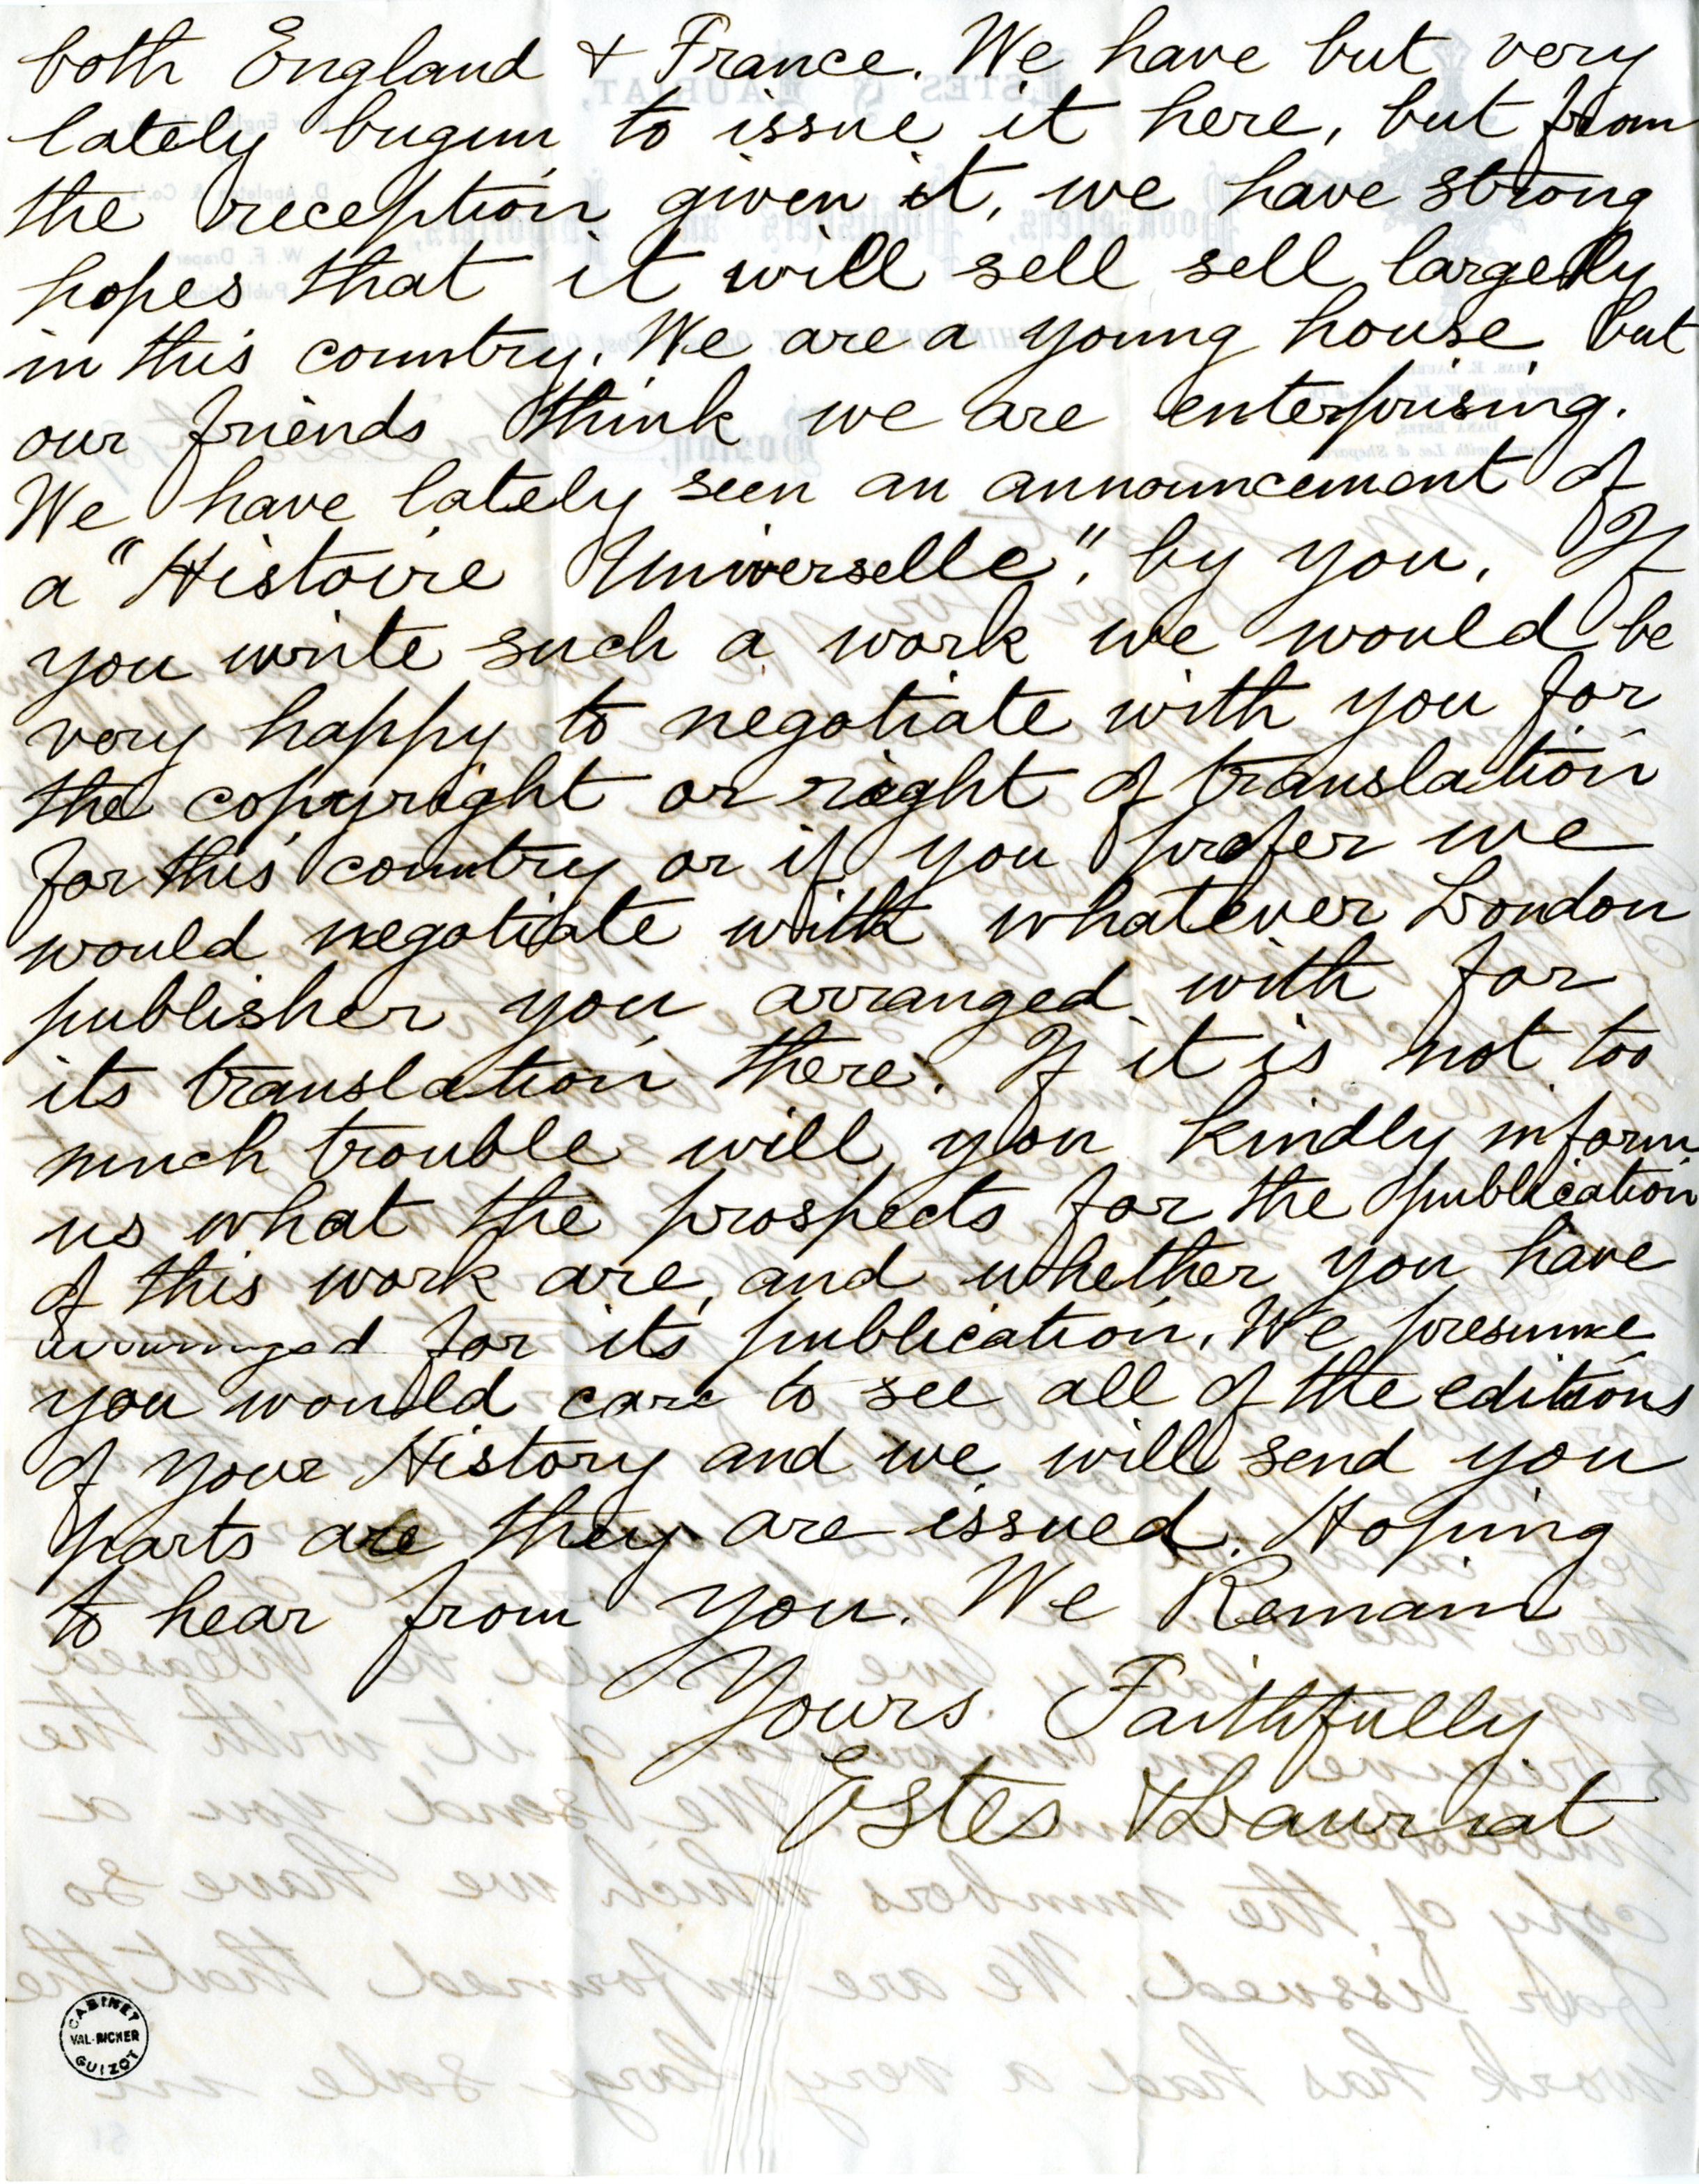 both England & France. We have but very
lately begun to issue it here, but from
the reception given it, we have strong
hopes that it will sell sell largely
in this country. We are a young house but
our friends think we are enterprising.
We have lately seen an announcement of
a "Histoire Universelle", by you. If
you write such a work we would be
very happy to negotiate with you for
the copyright or right of translation
for this country or if you prefer we
would negotiate with whatever London
publisher you arranged with for
its translation there. If it is not too
much trouble will you kindly inform
us what the prospects for the publication
of this work are, and whether you have
arranged for its publication. We presume
you would care to see all of the editions
of your History and we will send you
parts as they are issued. Hoping
to hear from you. We Remain
Yours Faithfully
Estes & Lauriat
CABINET
VAL-RICHER
GUIZOT